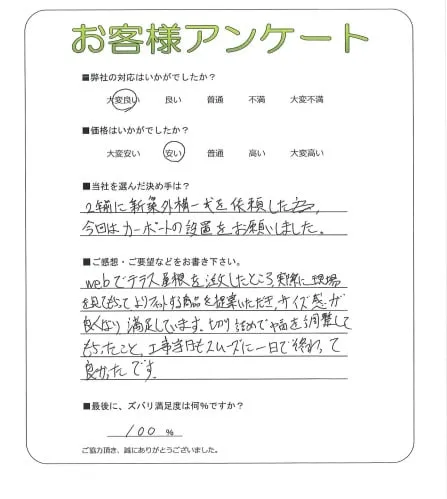 お客様アンケート
■弊社の対応はいかがでしたか？
大変良い 良い 普通 不満 大変不満
■価格はいかがでしたか？
大変安い 安い 普通 高い 大変高い
■当社を選んだ決め手は？
2年前に新築外構一式を依頼した
今回はカーポートの設置をお願いしました。
■ご感想・ご要望などをお書き下さい。
webでテラス屋根を注文したところ実際に現場
を見てもらってよりフィットする商品を提案いただき、サイズ感が
良くなり満足しています。切り詰めで幅を調整して
もらったこと、工事当日もスムーズに一日で終わって
良かったです。
■最後に、ズバリ満足度は何%ですか？
100 %
ご協力頂き、誠にありがとうございました。